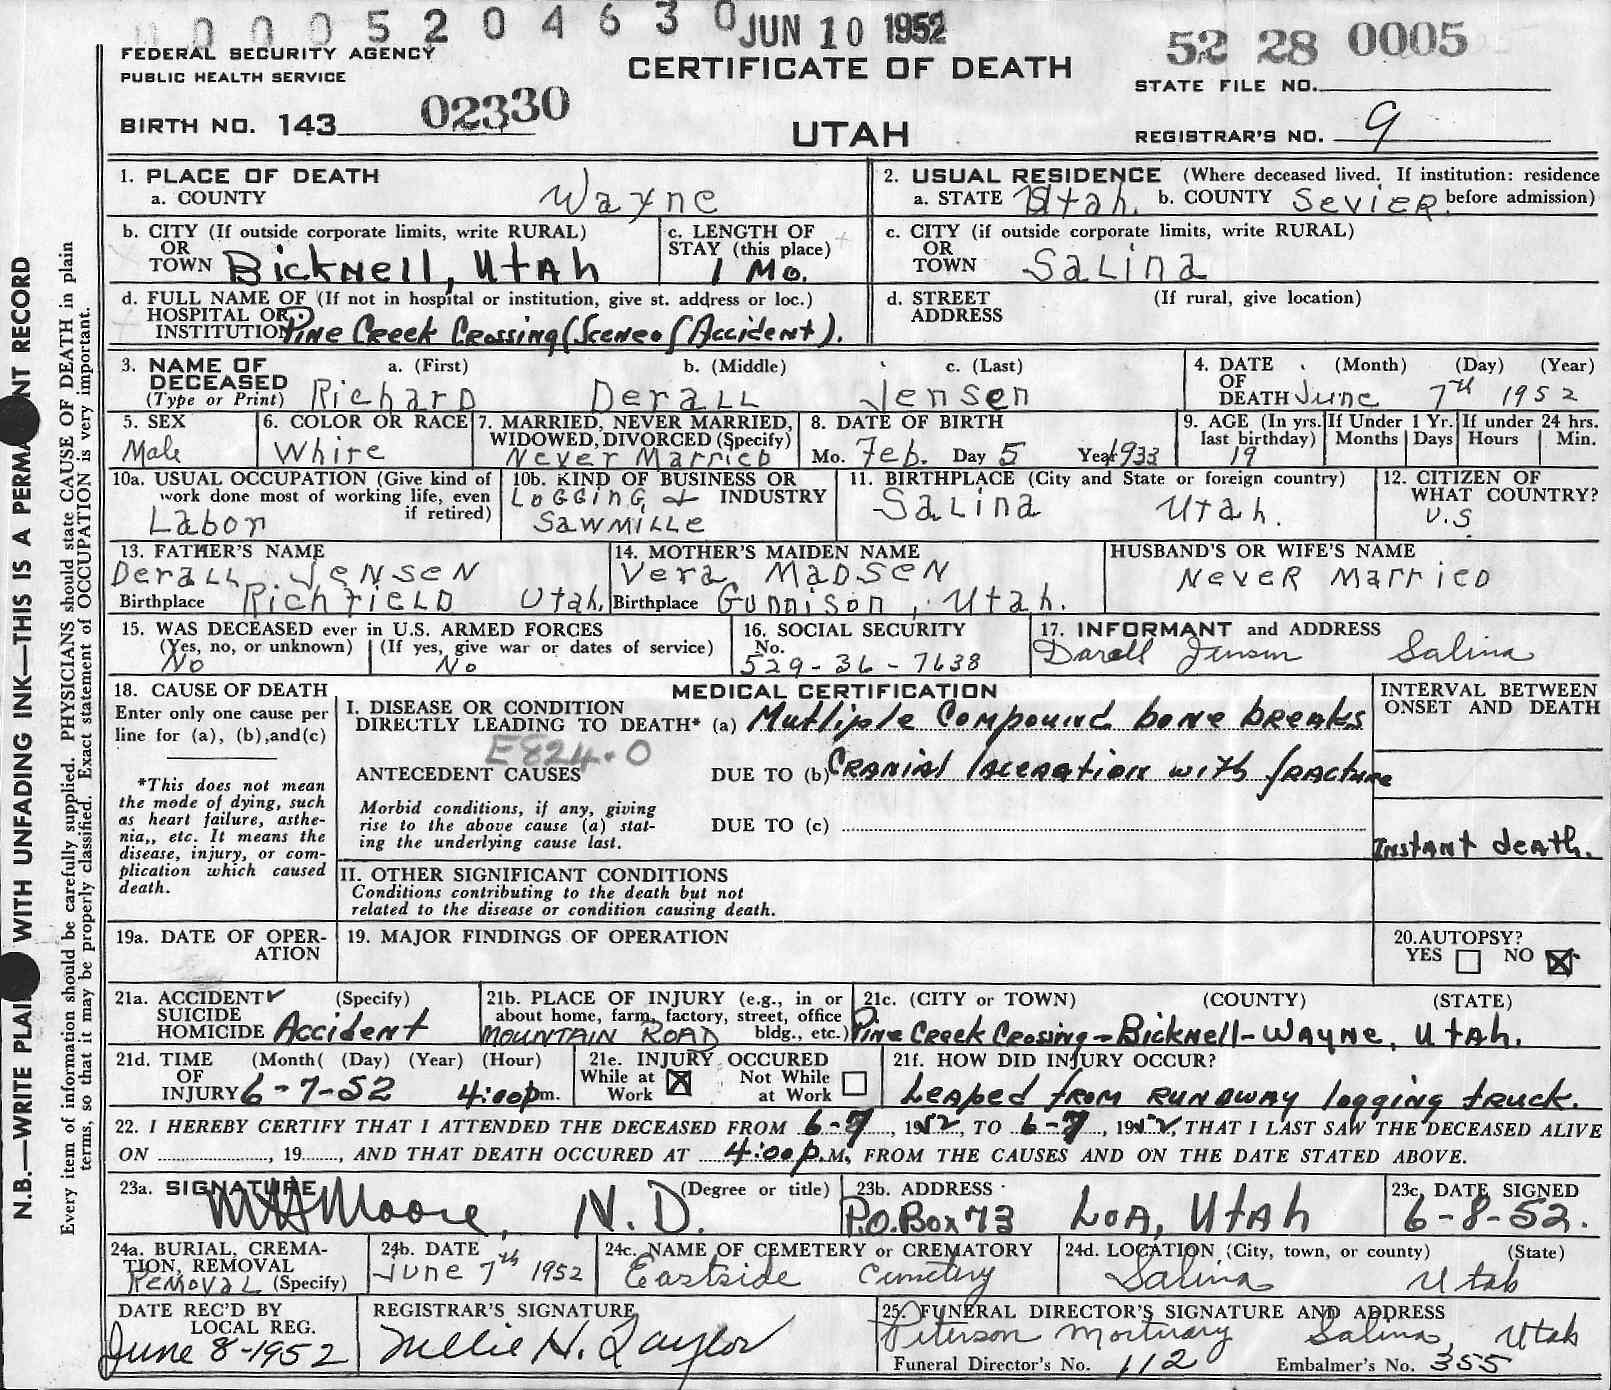 0 0 0 5 2 0 4 6 3 0 JUN 10 1952
52 28 0005
FEDERAL SECURITY AGENCY
PUBLIC HEALTH SERVICE
CERTIFICATE OF DEATH
UTAH
STATE FILE NO.
BIRTH NO. 143 02330
REGISTRAR'S NO. 9
N.B.—WRITE PLAI WITH UNFADING INK—THIS IS A PERMA NT RECORD
Every item of information should be carefully supplied. PHYSICIANS should state CAUSE OF DEATH in plain
terms, so that it may be properly classified. Exact statement of OCCUPATION is very important.
1. PLACE OF DEATH
a. COUNTY Wayne
2. USUAL RESIDENCE (Where deceased lived. If institution: residence
a. STATE Utah. b. COUNTY Sevier. before admission)
b. CITY (If outside corporate limits, write RURAL)
OR
TOWN Bicknell, Utah
c. LENGTH OF
STAY (this place)
1 Mo.
c. CITY (if outside corporate limits, write RURAL)
OR
TOWN Salina
d. FULL NAME OF (If not in hospital or institution, give st. address or loc.)
HOSPITAL OR
INSTITUTION Pine Creek Crossing (Scene of Accident).
d. STREET (If rural, give location)
ADDRESS
3. NAME OF DECEASED (Type or Print)
a. (First) b. (Middle) c. (Last)
Richard Derall Jensen
4. DATE (Month) (Day) (Year)
OF
DEATH June 7th 1952
5. SEX
Male
6. COLOR OR RACE
White
7. MARRIED, NEVER MARRIED,
WIDOWED, DIVORCED (Specify)
Never Married
8. DATE OF BIRTH
Mo. Feb. Day 5 Year 1933
9. AGE (In yrs. last birthday)
19
If Under 1 Yr. Months Days
If under 24 hrs. Hours Min.
10a. USUAL OCCUPATION (Give kind of
work done most of working life, even
if retired)
Labor
10b. KIND OF BUSINESS OR
INDUSTRY
Logging &
Sawmille
11. BIRTHPLACE (City and State or foreign country)
Salina Utah.
12. CITIZEN OF
WHAT COUNTRY?
U.S
13. FATHER'S NAME
Derall Jensen
Birthplace Richfield Utah.
14. MOTHER'S MAIDEN NAME
Vera Madsen
Birthplace Gunnison, Utah.
HUSBAND'S OR WIFE'S NAME
Never Married
15. WAS DECEASED ever in U.S. ARMED FORCES
(Yes, no, or unknown) (If yes, give war or dates of service)
No No
16. SOCIAL SECURITY
No.
529-36-7638
17. INFORMANT and ADDRESS
Darell Jensen Salina
18. CAUSE OF DEATH
Enter only one cause per
line for (a), (b), and(c)
*This does not mean
the mode of dying, such
as heart failure, asthe-
nia,, etc. It means the
disease, injury, or com-
plication which caused
death.
MEDICAL CERTIFICATION
I. DISEASE OR CONDITION
DIRECTLY LEADING TO DEATH* (a) Mutliple Compound bone breaks
E824.0
ANTECEDENT CAUSES DUE TO (b) Cranial laceration with fracture
Morbid conditions, if any, giving
rise to the above cause (a) stat-
ing the underlying cause last.
DUE TO (c)
INTERVAL BETWEEN
ONSET AND DEATH
Instant death.
II. OTHER SIGNIFICANT CONDITIONS
Conditions contributing to the death but not
related to the disease or condition causing death.
19a. DATE OF OPER-
ATION
19. MAJOR FINDINGS OF OPERATION
20. AUTOPSY?
YES NO
21a. ACCIDENT (Specify)
SUICIDE
HOMICIDE Accident
21b. PLACE OF INJURY (e.g., in or
about home, farm, factory, street, office
bldg., etc.)
Mountain Road
21c. (CITY or TOWN) (COUNTY) (STATE)
Pine Creek Crossing-Bicknell-Wayne, Utah.
21d. TIME (Month( (Day) (Year) (Hour)
OF
INJURY 6-7-52 4:00 pm.
21e. INJURY OCCURED
While at Work
Not While at Work
21f. HOW DID INJURY OCCUR?
Leaped from runaway logging truck.
22. I HEREBY CERTIFY THAT I ATTENDED THE DECEASED FROM 6-7, 1952, TO 6-7, 1952, THAT I LAST SAW THE DECEASED ALIVE
ON , 19 , AND THAT DEATH OCCURED AT 4:00 P.M, FROM THE CAUSES AND ON THE DATE STATED ABOVE.
23a. SIGNATURE (Degree or title)
Moore, N.D.
23b. ADDRESS
P.O. Box 73 Loa, Utah
23c. DATE SIGNED
6-8-52.
24a. BURIAL, CREMA-
TION, REMOVAL
Removal (Specify)
24b. DATE
June 7th 1952
24c. NAME OF CEMETERY or CREMATORY
Eastside Cemetery
24d. LOCATION (City, town, or county) (State)
Salina Utah
DATE REC'D BY
LOCAL REG.
June 8-1952
REGISTRAR'S SIGNATURE
Nellie H. Taylor
25. FUNERAL DIRECTOR'S SIGNATURE AND ADDRESS
Peterson Mortuary Salina, Utah
Funeral Director's No. 112 Embalmer's No. 355